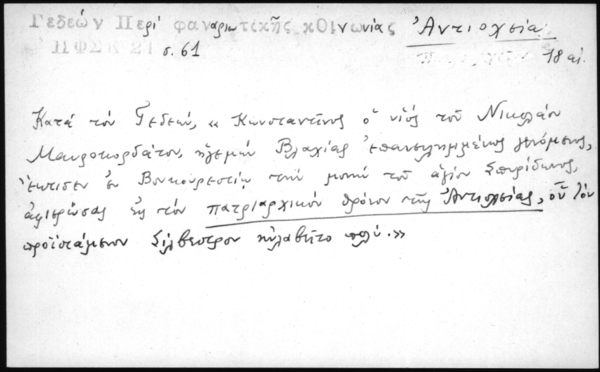 Γεδεών Περί φαναριωτικῆς κοινωνίας Ἀντιοχεία
ΠΦΣΚ 21 σ. 61 18 αἰ.
Κατά τόν Γεδεών, « Κωνσταντῖνος ὁ υἱός τοῦ Νικολάου
Μαυροκορδάτου, ἡγεμών Βλαχίας ἐπανειλημμένως γενόμενος,
ἔκτισεν ἐν Βουκουρεστίῳ τήν μονήν τοῦ ἁγίου Σπυρίδωνος,
ἀφιερώσας εἰς τόν πατριαρχικόν θρόνον τῆς Ἀντιοχείας, οὗ τόν
προϊστάμενον Σίλβεστρον ηὐλαβεῖτο πολύ.»